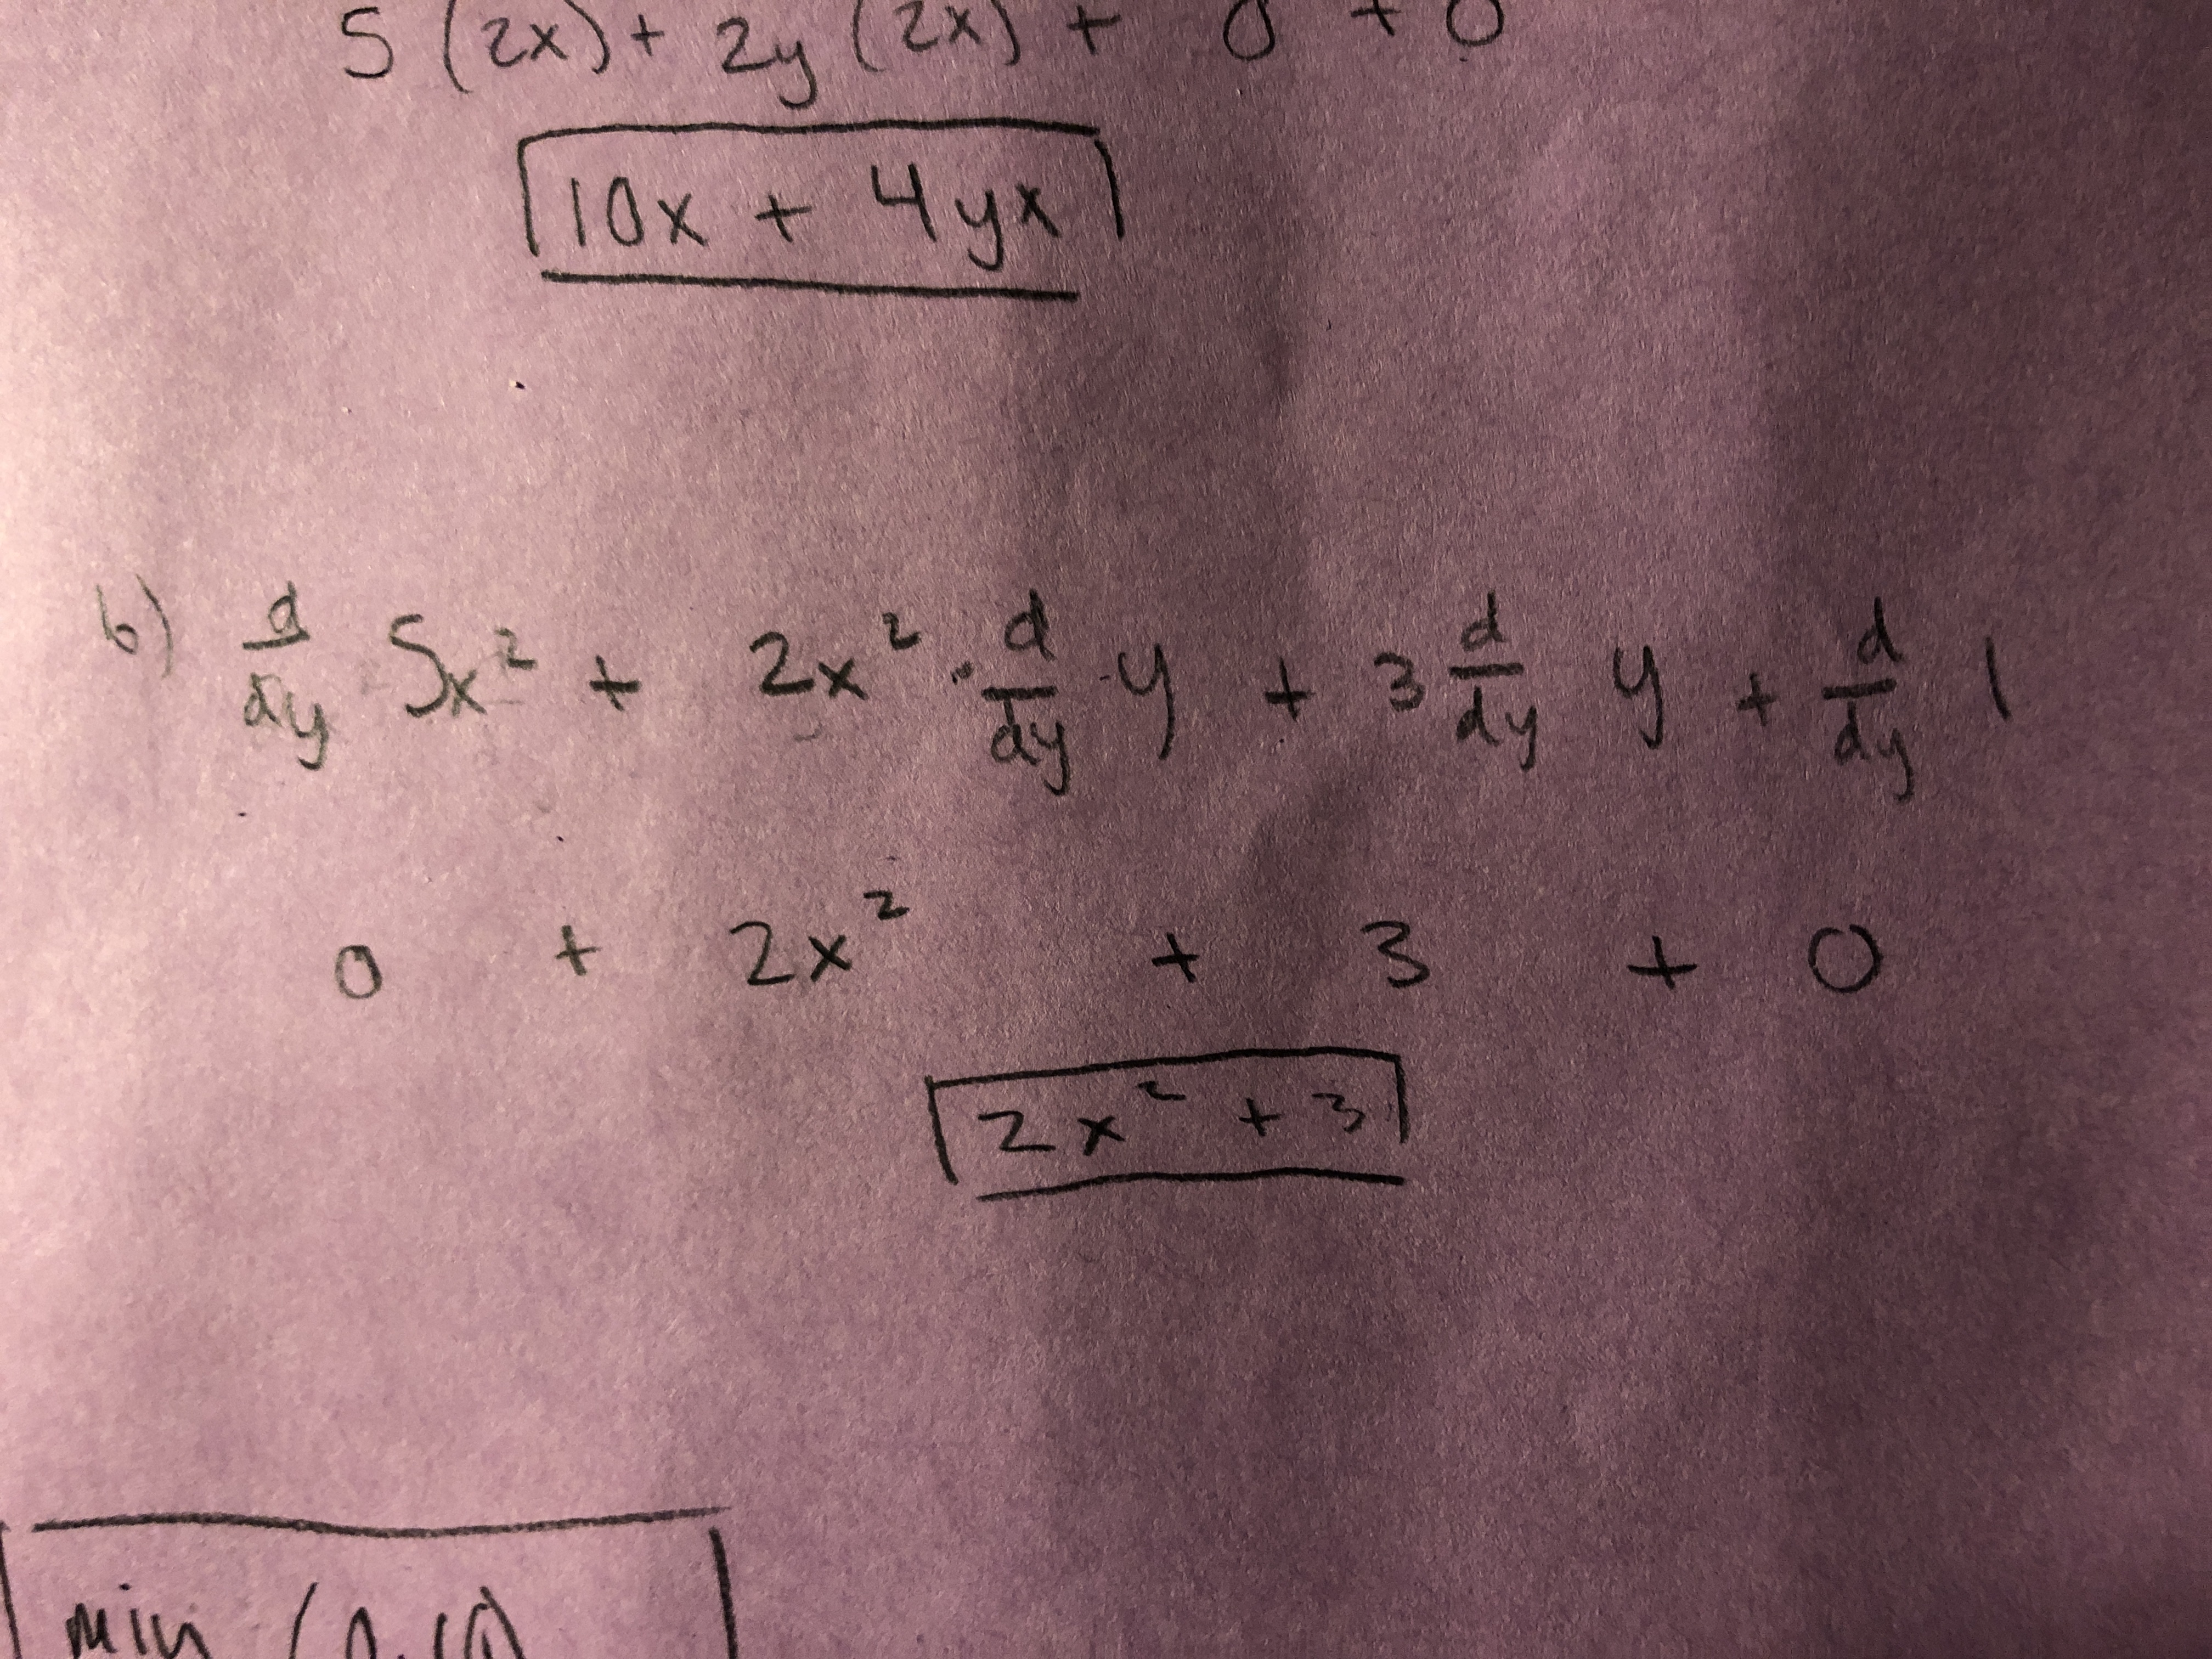 5 (2x) + 2y (2x) + 0 + 0
10x + 4yx
b) d/dy 5x² + 2x² · d/dy · y + 3 d/dy y + d/dy 1
0 + 2x² + 3 + 0
2x² + 3
min